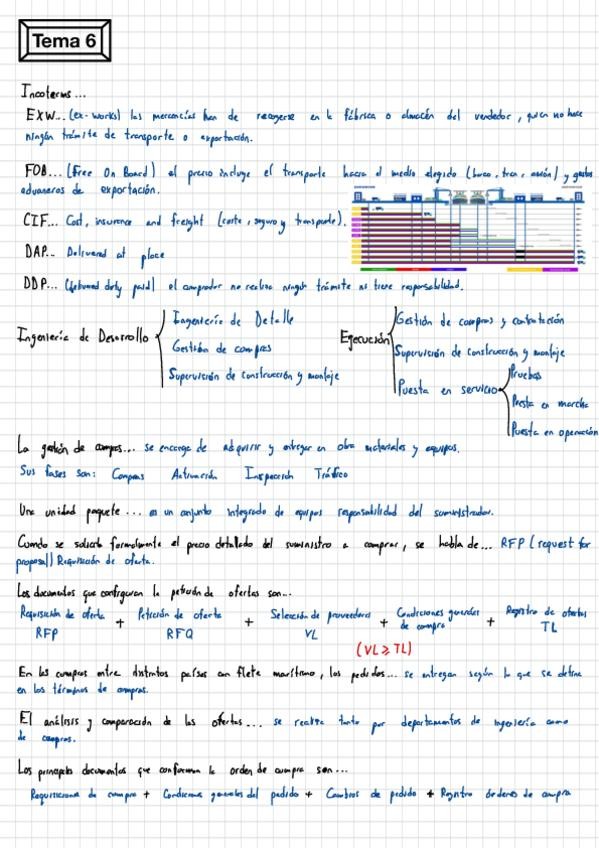 Tema 6
Incoterms...
EXW... (ex-works) las mercancías han de recogerse en la fábrica o almacén del vendedor, quien no hace
ningún trámite de transporte o exportación.
FOB... (Free On Board) el precio incluye el transporte hacia el medio elegido (barco, tren, avión) y gastos
aduaneros de exportación.
CIF... Cost, insurance and freight (coste, seguro y transporte).
DAP... Delivered at place
DDP... (delivered duty paid) el comprador no realiza ningún trámite ni tiene responsabilidad.
Ingeniería de Desarrollo
Ingeniería de Detalle
Gestión de compras
Supervisión de construcción y montaje
Ejecución
Gestión de compras y contratación
Supervisión de construcción y montaje
Puesta en servicio
Pruebas
Puesta en marcha
Puesta en operación
La gestión de compras... se encarga de adquirir y entregar en obra materiales y equipos.
Sus fases son: Compras Activación Inspección Tráfico
Una unidad paquete... es un conjunto integrado de equipos responsabilidad del suministrador.
Cuando se solicita formalmente el precio detallado del suministro a comprar, se habla de... RFP (request for
proposal) Requisición de oferta.
Los documentos que configuran la petición de ofertas son...
Requisición de oferta + Petición de oferta + Selección de proveedores + Condiciones generales de compra + Registro de ofertas
RFP RFQ VL TL
(VL ≥ TL)
En las compras entre distintos países con flete marítimo, los pedidos... se entregan según lo que se define
en los términos de compras.
El análisis y comparación de las ofertas... se realiza tanto por departamentos de ingeniería como
de compras.
Los principales documentos que conforman la orden de compra son...
Requisiciones de compra + Condiciones generales del pedido + Cambios de pedido + Registro órdenes de compra